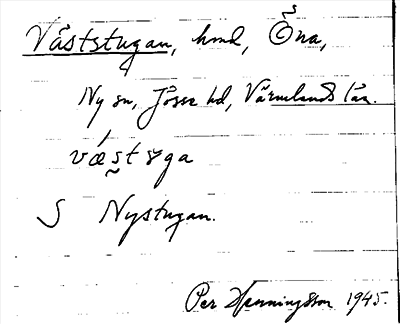 Väststugan, hmd, Õna,
Ny sn, Jösse hd, Värmlands län.
væst ɤga
S Nystugan.
Per Henningsson 1945.